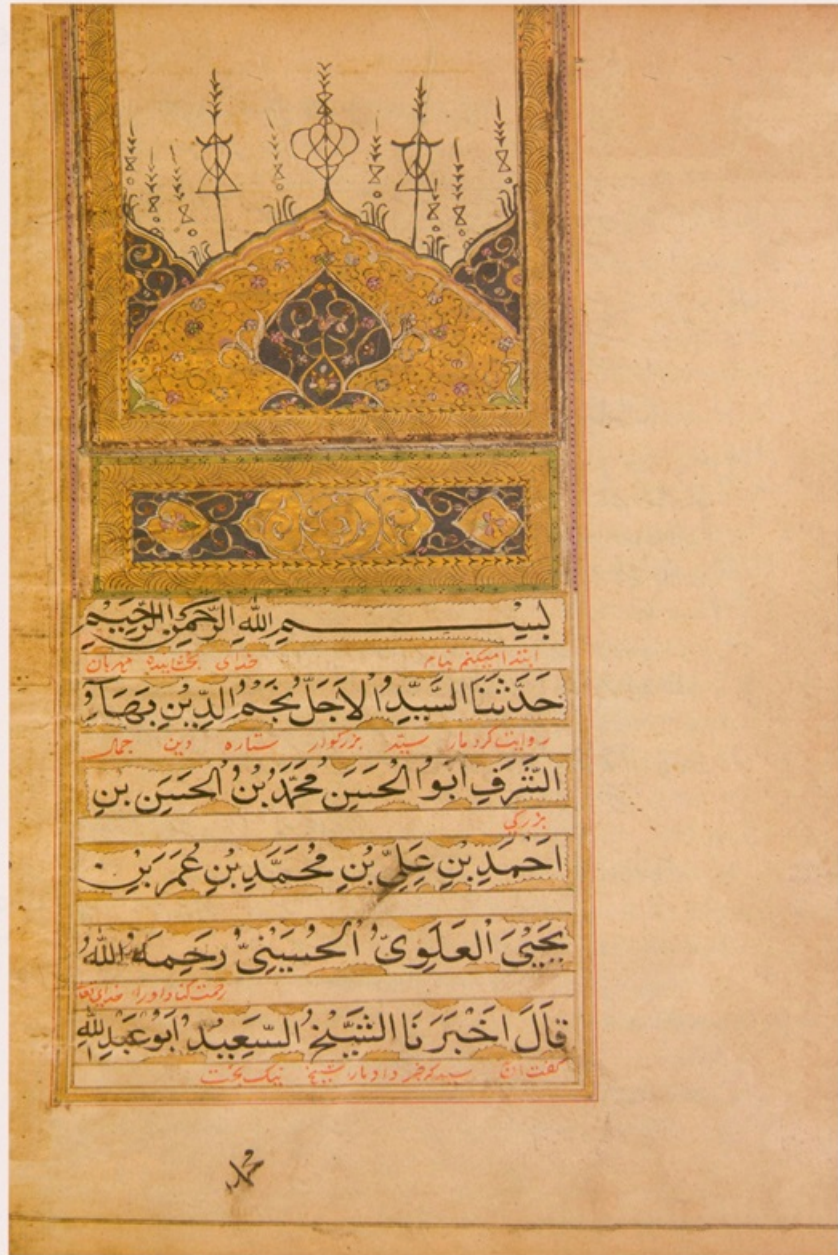 بِسْمِ اللهِ الرَّحْمٰنِ الرَّحِيمِ
ابتدا میکنم بنام خدای بخشاینده مهربان
حَدَّثَنَا السَّيِّدُ الْاَجَلُّ نَجْمُ الدِّينِ بَهَاۤءُ
روایت کرد مارا سیّد بزرگوار ستاره دین جمال
الشَّرَفِ اَبُو الْحَسَنِ مُحَمَّدُ بْنُ الْحَسَنِ بْنِ
بزرگی
اَحْمَدِ بْنِ عَلِيِّ بْنِ مُحَمَّدِ بْنِ عُمَرَ بْنِ
يَحْيَى الْعَلَوِىُّ الْحُسَيْنِىُّ رَحِمَهُ اللهُ
رحمت کناد او را خدای تعا
قَالَ اَخْبَرَنَا الشَّيْخُ السَّعِيدُ اَبُو عَبْدِ اللهِ
گفت ان سید که خبر داد مارا شیخ نیک بخت